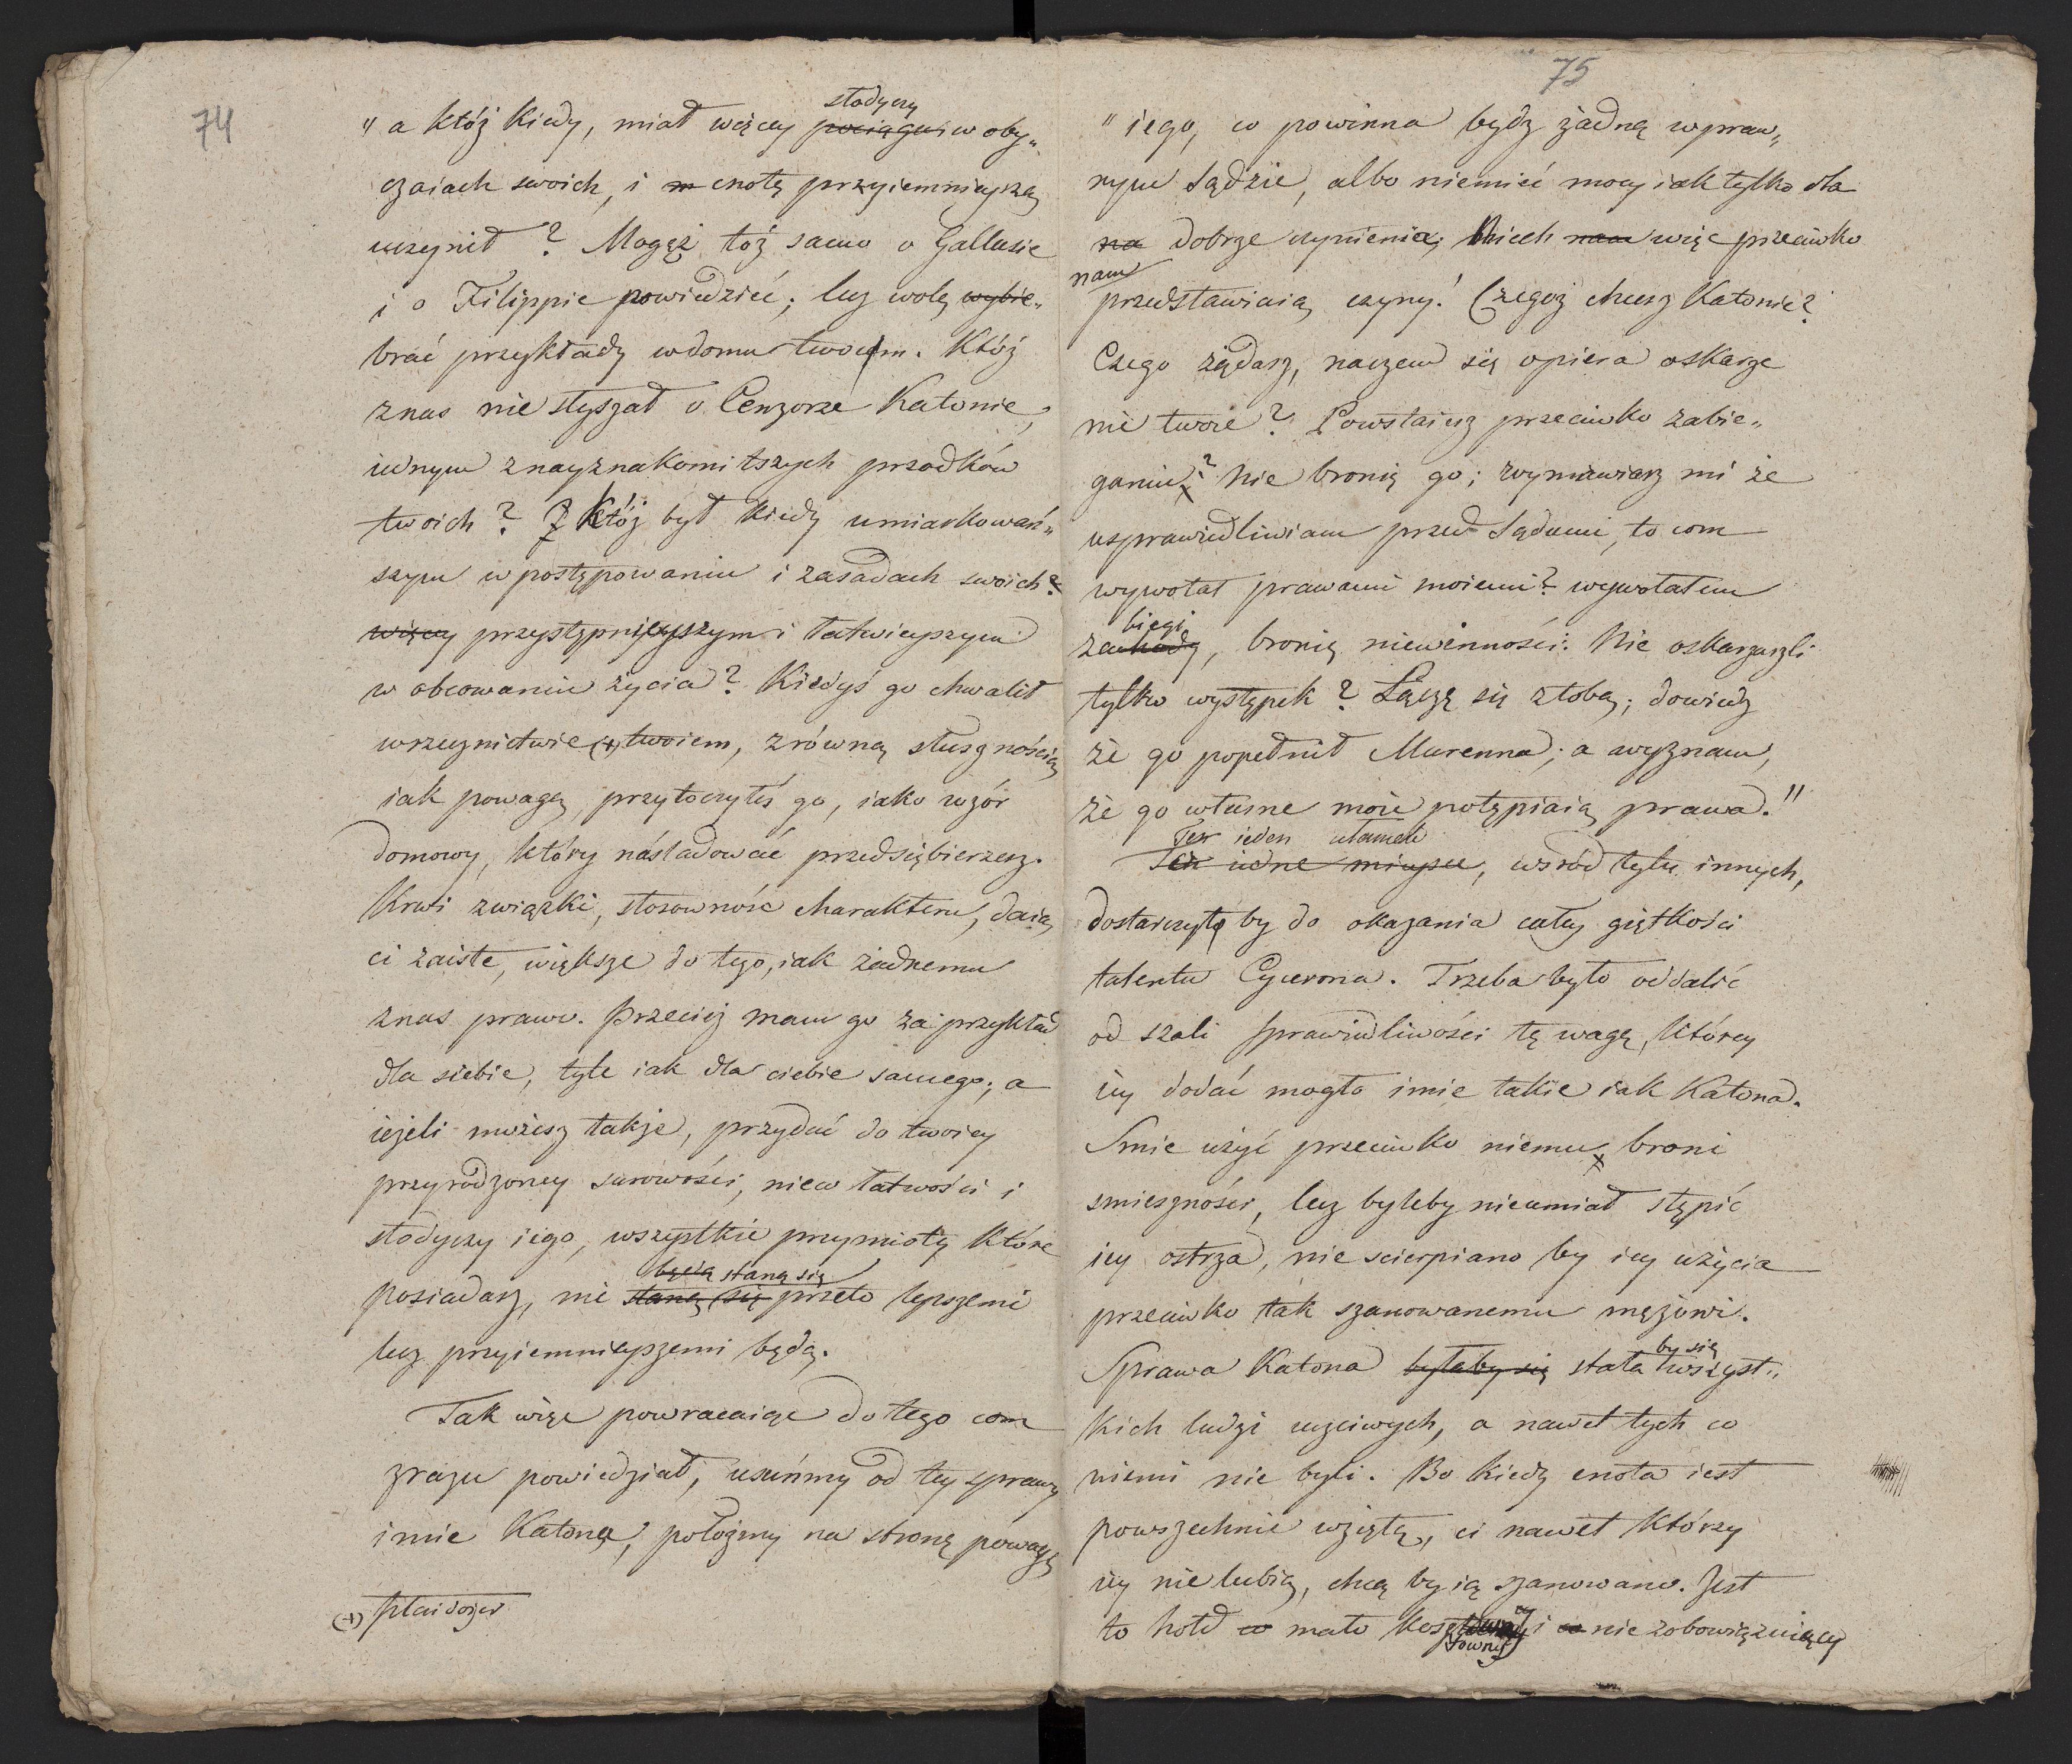 74
słodyczy
" a któż kiedy, miał więcey pociągu i w oby„
czaiach swoich, i cnotę przyiemnieyszą
uczynił? Mogęż tóż samo o Gallusie
i o Filippie powiedzieć; lecz wolę wybie„
brać przykłady w domu twoim. Któż
znas nie słyszał o Cenzorze Katonie,
iednym znayznakomitszych przodków
twoich? Któż był kiedy umiarkowań„
szym w postępowaniu i zasadach swoich?
więcey przystępnieyszym i łatwieyszym
w obcowaniu życia? Kiedyś go chwalił
wrzecznictwie (+) twoiem, zrówną słusznością
iak powagą, przytoczyłeś go, iako wzór
domowy, który násladować przedsiębierzesz.
Krwi związki, stosowność charakteru, daią
ci zaiste, większe do tego, iak żadnemu
znas prawo. Przecież mam go za przykład
dla siebie, tyle iak dla ciebie samego; a
ieżeli możesz także, przydać do twoiey
przyrodzoney surowości, nieco łatwości i
słodyczy iego, wszystkie przymioty które
będą staną się
posiadasz, nie staną się przeto lepszemi
lecz przyiemnieyszemi będą.
Tak więc powracaiąc do tego com
zrazu powiedział, usuńmy od tey sprawy
imie Katona, położmy na stronę powagę
(+) plaidoyer
75
" iego, co powinna bydz żadną wpraw„
nym Sądzie, albo niemieć mocy iak tylko dla
na dobrze czynienia; Niech nam więc przeciwko
nam
przedstawiaią czyny! Czegoż chcesz Katonie?
Czego żądasz, naczem się opiera oskarże
nie twoie? Powstaiesz przeciwko zabie„
ganiu? Nie bronię go; wymawiasz mi że
usprawiedliwiam przed Sądami, to com
wywołał prawami moiemi? wywołałem
biegi
zachody, bronię niewinności: Nie oskarżaszli
tylko występek? Łączę się ztobą; dowiedz
że go popełnił Murenna; a wyznam,
że go własne moie potępiaią prawa."
Ten ieden ułamek
Też iedne mieysce, wsród tylu innych,
dostarczyłby do okazania całey giętkości
talentu Cycerona. Trzeba było oddalić
od szali sprawiedliwości tę wagę, którey
iey dodać mogło imie takie iak Katona.
Smie użyć przeciwko niemu broni
smieszności, lecz byleby nieumiał stępić
iey ostrza, nie scierpiano by iey użycia
przeciwko tak szanowanemu mężowi.
by się
Sprawa Katona byłaby się stała wszyst„
kich ludzi uczciwych, a nawet tych co
niemi nie byli. Bo kiedy cnota iest
powszechnie wziętą, ci nawet którzy
iey nie lubią, chcą by ią szanowano. Jest
to hołd co mało kosztowny i co nie zobowiązuiący
towny